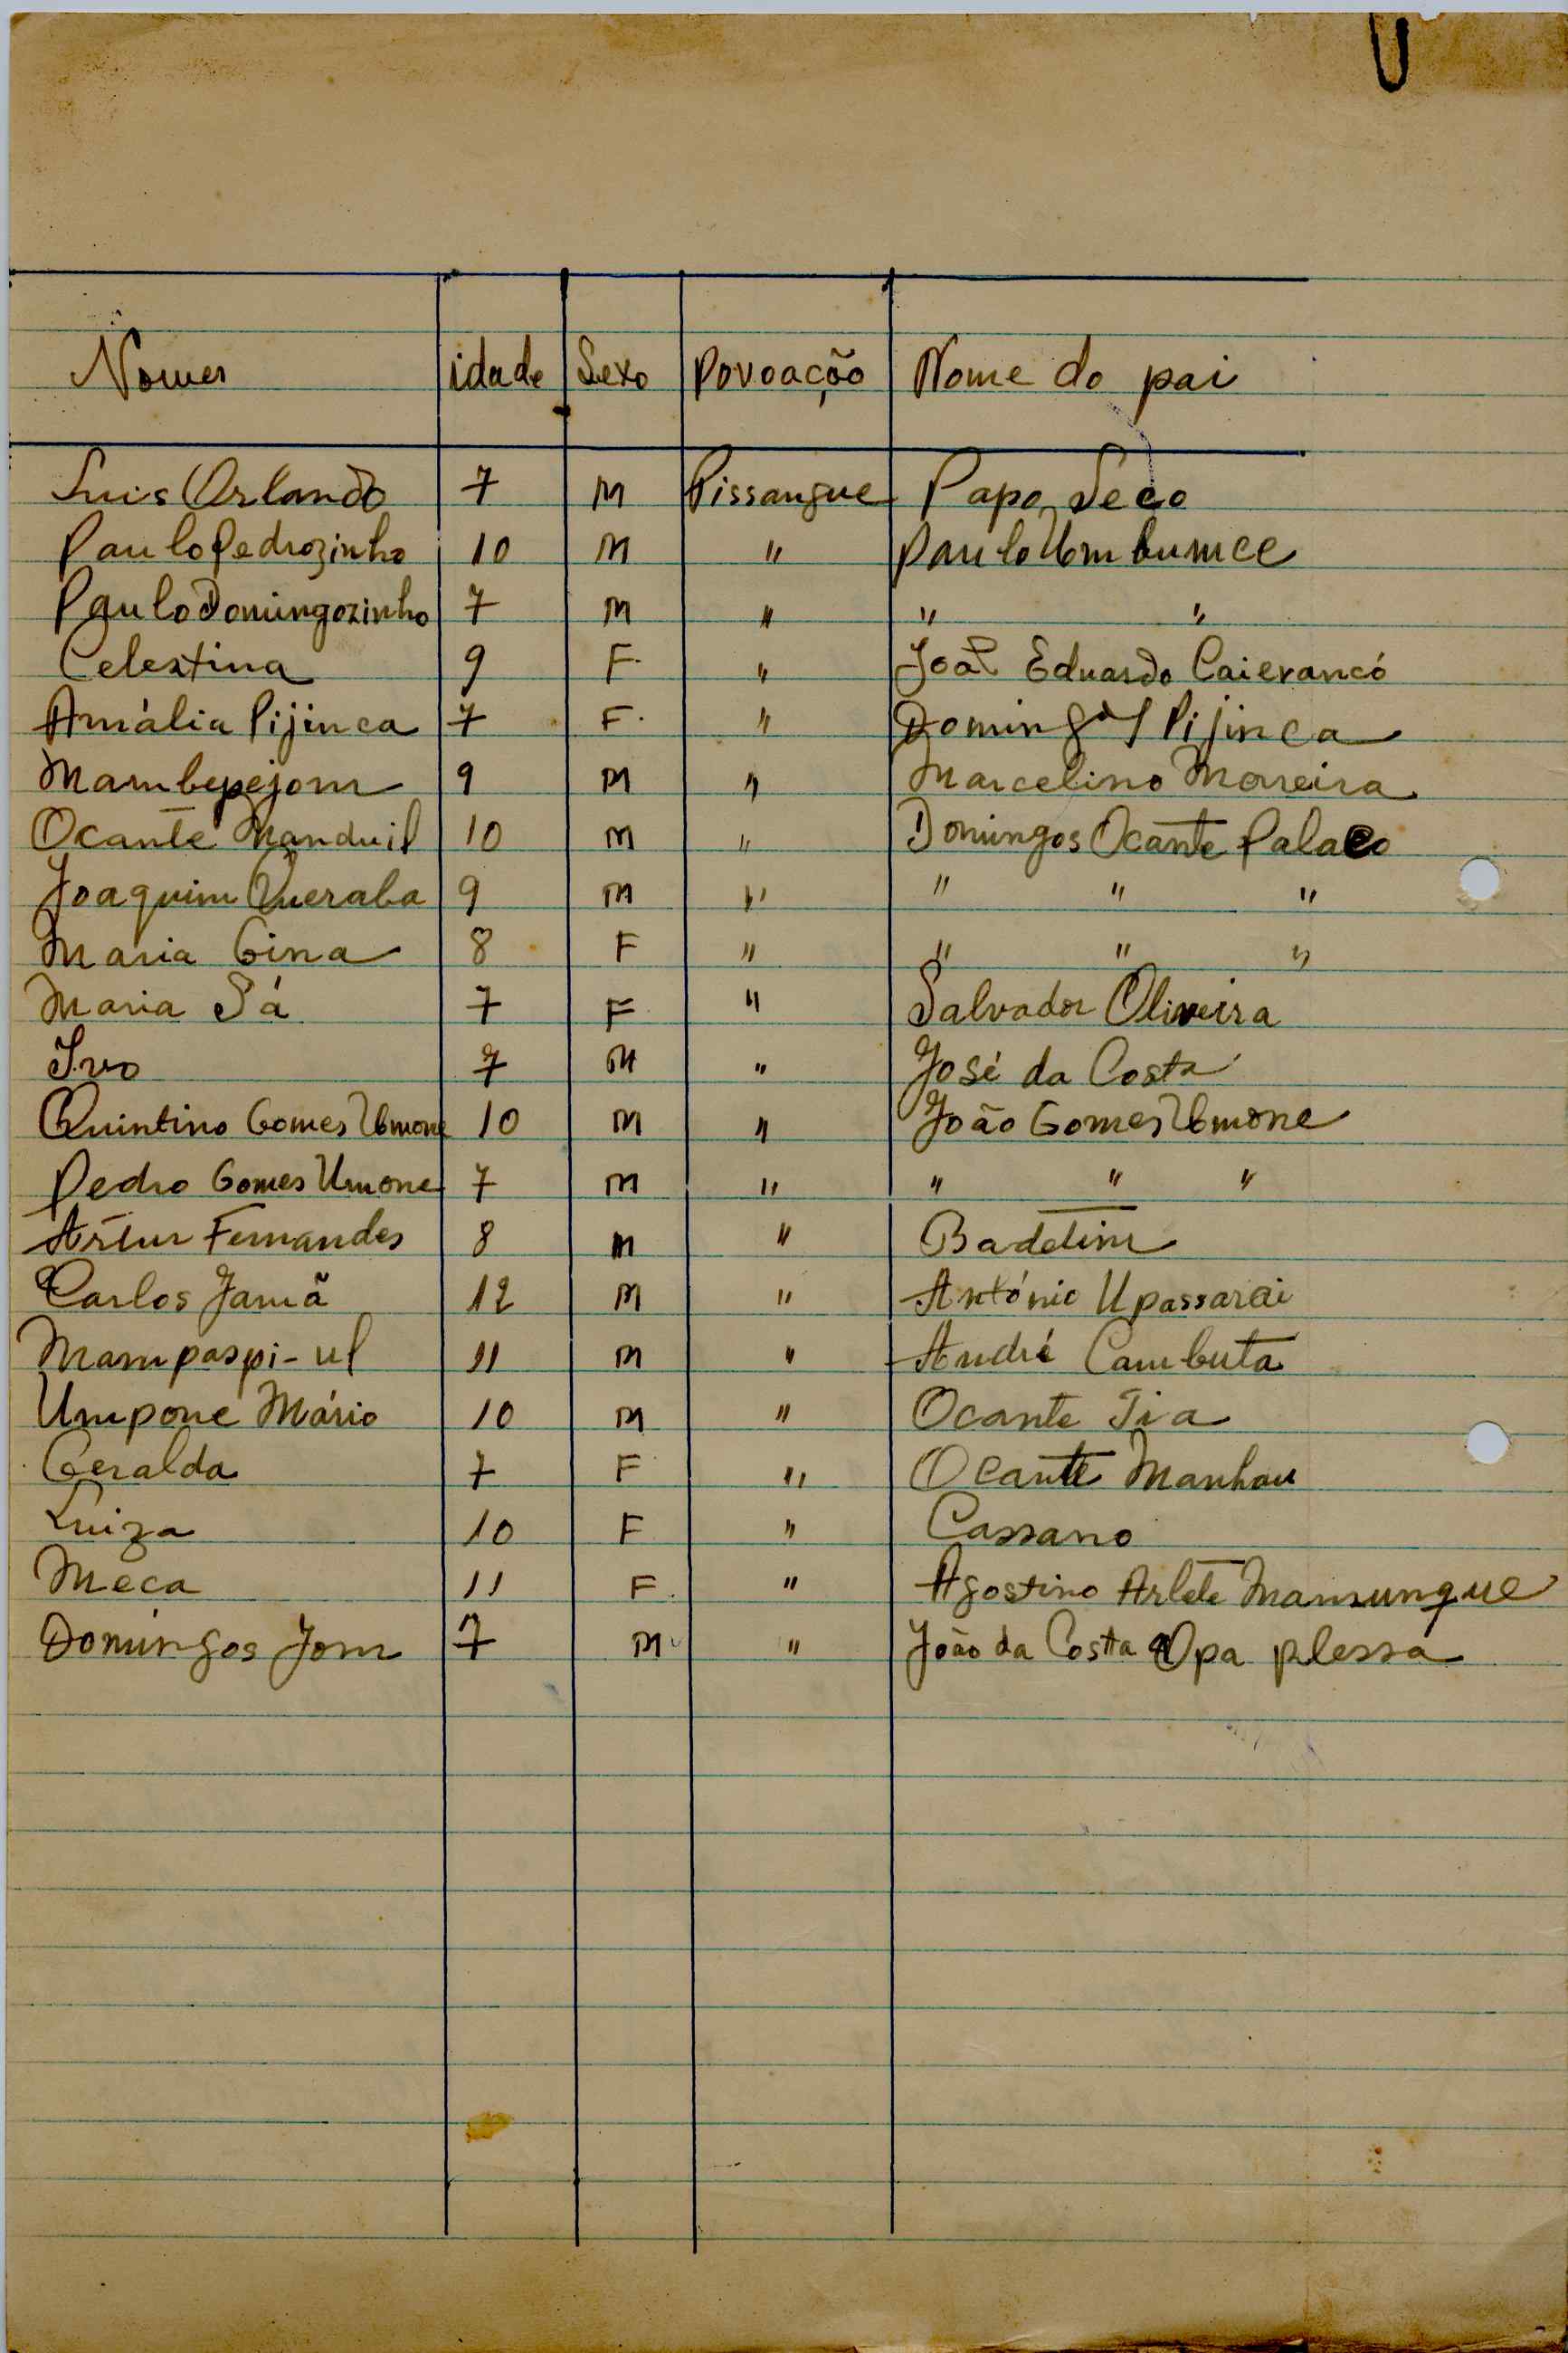 Nomes idade Sexo Povoação Nome do pai
Luis Orlando 7 M Pissangue Papo Seco
Paulo Pedrozinho 10 M " Paulo Umbumce
Paulo Domingozinho 7 M " " "
Celestina 9 F. " João Eduardo Caierancó
Amália Pijinca 7 F. " Domingos Pijinca
Mambepejom 9 M " Marcelino Moreira
Ocante Nanduil 10 M " Domingos Ocante Palaco
Joaquim Queraba 9 M " " " "
Maria Gina 8 F " " " "
Maria Sá 7 F " Salvador Oliveira
Ivo 7 M " José da Costa
Quintino Gomes Umone 10 M " João Gomes Umone
Pedro Gomes Umone 7 M " " " "
Artur Fernandes 8 M " Badetim
Carlos Jamã 12 M " António Upassarai
Mampaspi-ul 11 M " André Cambuta
Umpone Mário 10 M " Ocante Tia
Geralda 7 F " Ocante Manhau
Luiza 10 F " Cassano
Meca 11 F. " Agostino Arlete Mansunque
Domingos Jom 7 M " João da Costa Opa plessa